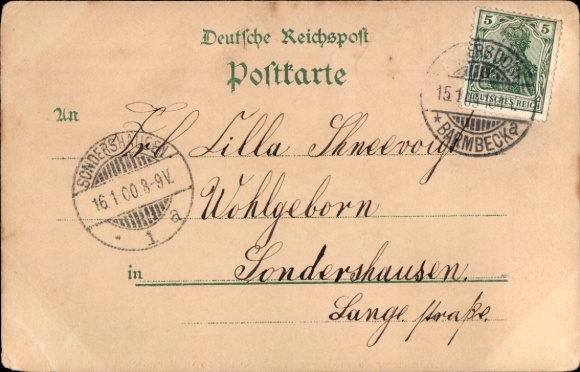 Deutsche Reichspost
Postkarte
5 5
DEUTSCHES REICH
15.1
* BARMBECK a
An
Frl Lilla Shneevoigt
SONDERSHAUSEN
16.1 00.8-9V.
* 1 a
Wohlgeborn
in Sondershausen.
Lange straße.